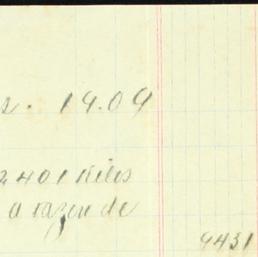 1909
2401 kilos
a razon de
9431